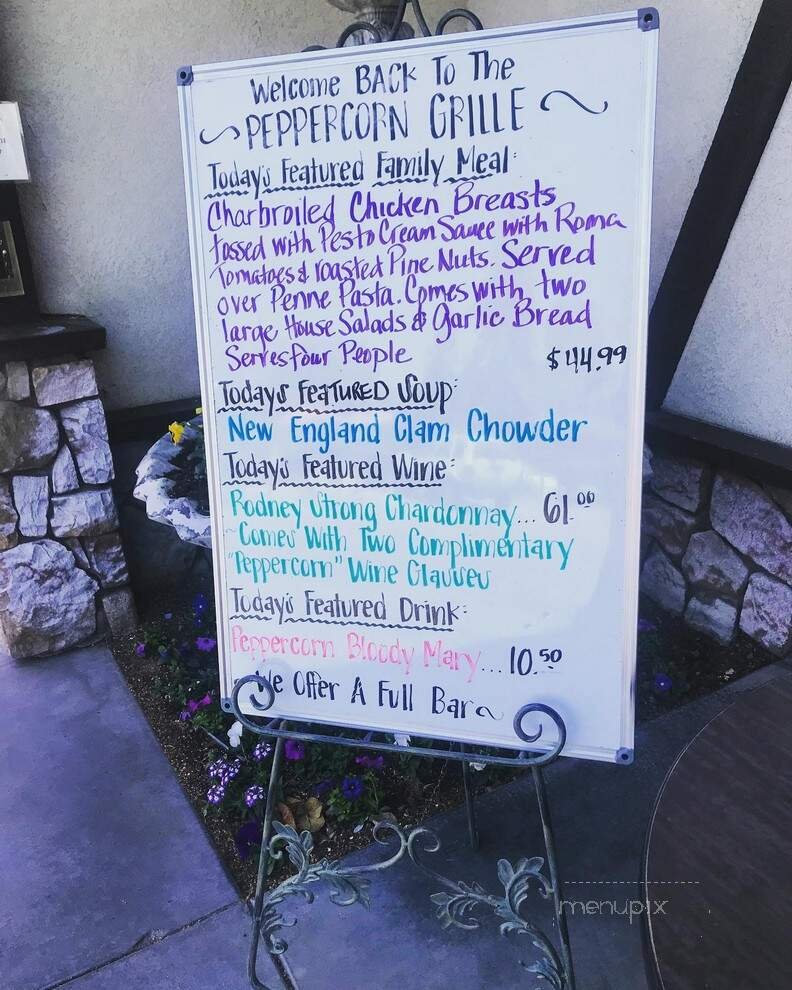 Welcome BACK To The
~ PEPPERCORN GRILLE ~
Today's Featured Family Meal:
Charbroiled Chicken Breasts
tossed with Pesto Cream Sauce with Roma
Tomatoes & roasted Pine Nuts. Served
over Penne Pasta. Comes with two
large House Salads & Garlic Bread
Serves four People $44.99
Todays FeATURED Soup:
New England Clam Chowder
Today's Featured Wine:
Rodney Strong Chardonnay... 61.00
~Comes With Two Complimentary
"Peppercorn" Wine Glasses
Today's Featured Drink:
Peppercorn Bloody Mary... 10.50
~ We Offer A Full Bar ~
menupix